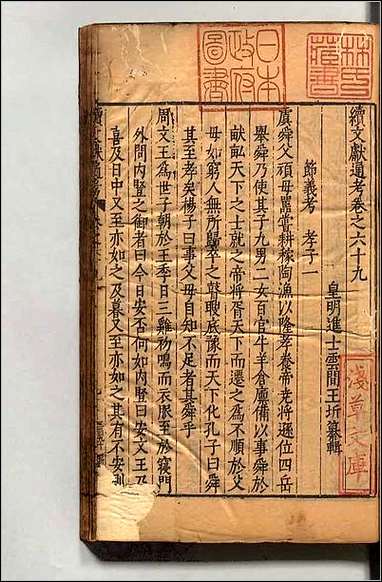 續文獻通考卷之六十九
皇明進士雲間王圻纂輯
節義考 孝子一
虞舜父頑母嚚嘗耕稼陶漁以隆孝養帝堯將遜位四岳
舉舜乃使其子九男二女百官牛羊倉廩備以事舜於
畎畝天下之士就之帝將胥天下而遷之為不順於父
母如窮人無所歸卒之瞽瞍底豫而天下化孔子曰舜
其至孝矣楊子曰事父母自知不足者其舜乎
周文王為世子朝於王季日三雞初鳴而衣服至於寢門
外問內豎之御者曰今日安否何如內豎曰安文王乃
喜及日中又至亦如之及暮又至亦如之其有不安
日本政府圖書
林氏藏書
淺草文庫